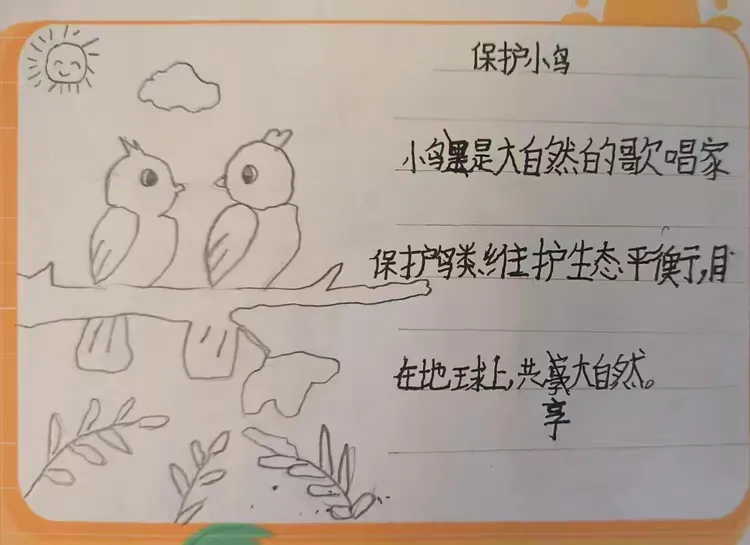 保护小鸟
小鸟是大自然的歌唱家
保护鸟类维护生态平衡,
在地球上,共享大自然。